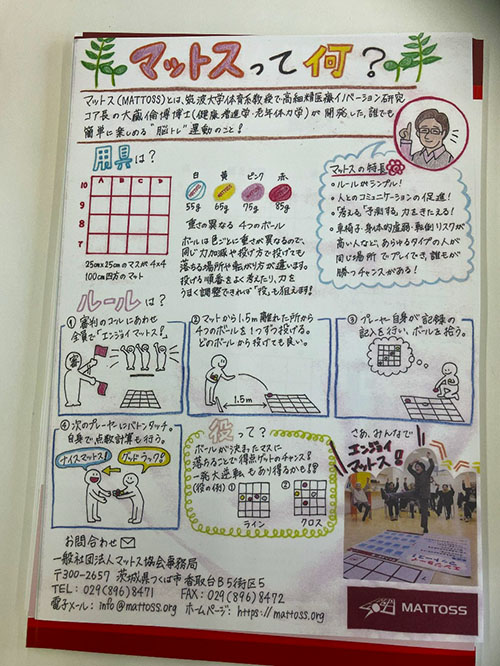 マットスって何？
マットス(MATTOSS)とは、筑波大学体育系教授で高細精医療イノベーション研究
コア長の大藏倫博博士(健康増進学・老年体力学)が開発した、誰でも
簡単に楽しめる"脳トレ"運動のこと！
用具は？
A B C D
10
9
8
7
25cm×25cmのマスが4×4
100cm四方のマット
白 黄 ピンク 赤
55g 65g 75g 85g
重さの異なる4つのボール
ボールは色ごとに重さが異なるので、
同じ力加減や投げ方で投げても
落ちる場所や転がり方が違います。
投げる順番をよく考えたり、力を
うまく調整できれば「役」も狙えます！
マットスの特長
・ルールがシンプル！
・人とのコミュニケーションの促進！
・「考える」「予測する」力をきたえる！
・車椅子・身体的虚弱・転倒リスクが
高い人など、あらゆるタイプの人が
同じ場所でプレイでき、誰もが
勝つチャンスがある！
ルールは？
①審判のコールにあわせ
全員で「エンジョイマットス！」
②マットから1.5m離れた所から
4つのボールを1つずつ投げる。
どのボールから投げても良い。
1.5m
③プレーヤー自身が記録の
記入を行い、ボールを拾う。
④次のプレーヤーにバトンタッチ。
自身で、点数計算も行う。
ナイスマットス！
グッドラック！
役って？
ボールが決まったマスに
落ちることで得点ゲットのチャンス！
一発大逆転もあり得るかも！？
(役の例) ① ②
ライン クロス
さあ、みんなで
エンジョイ
マットス！
お問合わせ
一般社団法人マットス協会事務局
〒300-2657 茨城県つくば市香取台B5街区5
TEL：029(896)8471 FAX：029(896)8472
電子メール：info@mattoss.org ホームページ：https://mattoss.org
MATTOSS